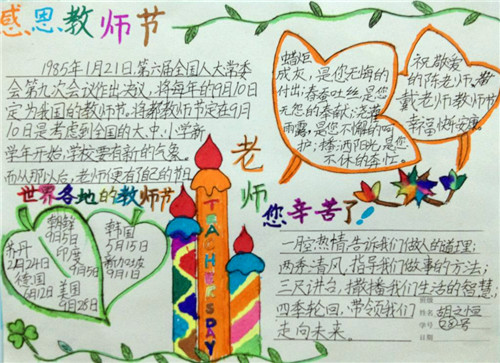 感恩教师节
1985年1月21日,第六届全国人大常委
会第九次会议作出决议,将每年的9月10日
定为我国的教师节,将教师节定在9月
10日是考虑到全国的大、中、小学新
学年开始,学校要有新的气象。
而从那以后,老师便有了自己的节日
蜡炬
成灰,是您无悔的
付出;春蚕吐丝,是您
无怨的奉献;
雨露,是您不懈的呵
护;播洒阳光,是您
不休的
祝敬爱
的陈老师、
戴老师教师节
幸福快乐安康。
老师
您辛苦了!
世界各地的教师节
朝鲜
9月5日
印度
9月5日
苏丹
2月24日
德国
6月12日
美国
9月28日
韩国
5月15日
新加坡
9月1日
TEACHERS DAY
一腔热情,告诉我们做人的道理;
两袖清风,指导我们做事的方法;
三尺讲台,撒播我们生活的智慧;
四季轮回,带领我们
走向未来。
班级
姓名 胡文恒
学号
日期